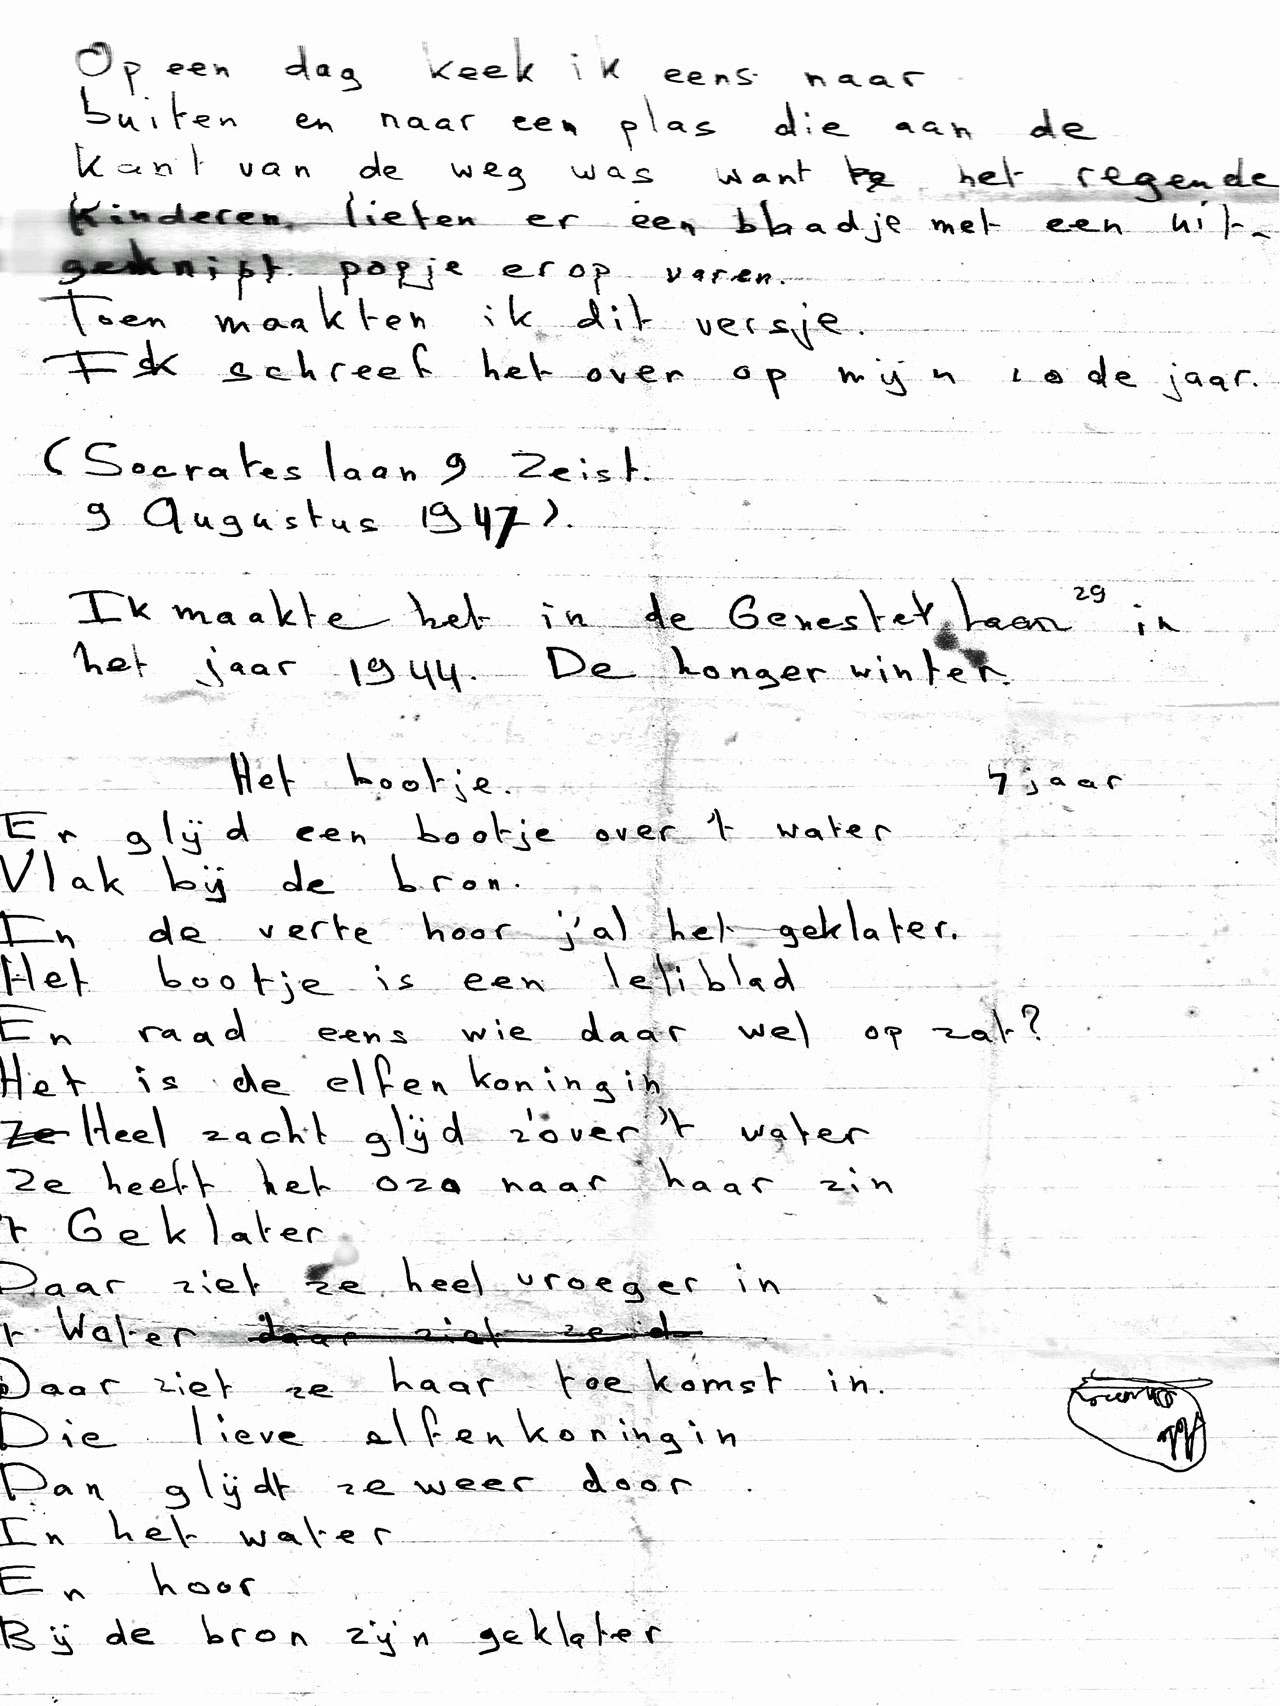 Op een dag keek ik eens naar
buiten en naar een plas die aan de
kant van de weg was want het regende
Kinderen lieten er een blaadje met een uit-
geknipt popje erop varen.
Toen maakten ik dit versje.
Ik schreef het over op mijn 10de jaar.
(Socrates laan 9 Zeist.
9 Augustus 1947).
Ik maakte het in de Genestet laan 29 in
het jaar 1944. De honger winter.
Het bootje. 7 jaar
Er glijd een bootje over 't water
Vlak bij de bron.
In de verte hoor j'al het geklater.
Het bootje is een leliblad
En raad eens wie daar wel op zat?
Het is de elfen koningin
Ze Heel zacht glijd z'over 't water
Ze heeft het ozo naar haar zin
't Geklater
Daar ziet ze heel vroeger in
't Water daar ziet ze d
Daar ziet ze haar toekomst in.
Die lieve elfenkoningin
Dan glijdt ze weer door
In het water
En hoor
Bij de bron zijn geklater